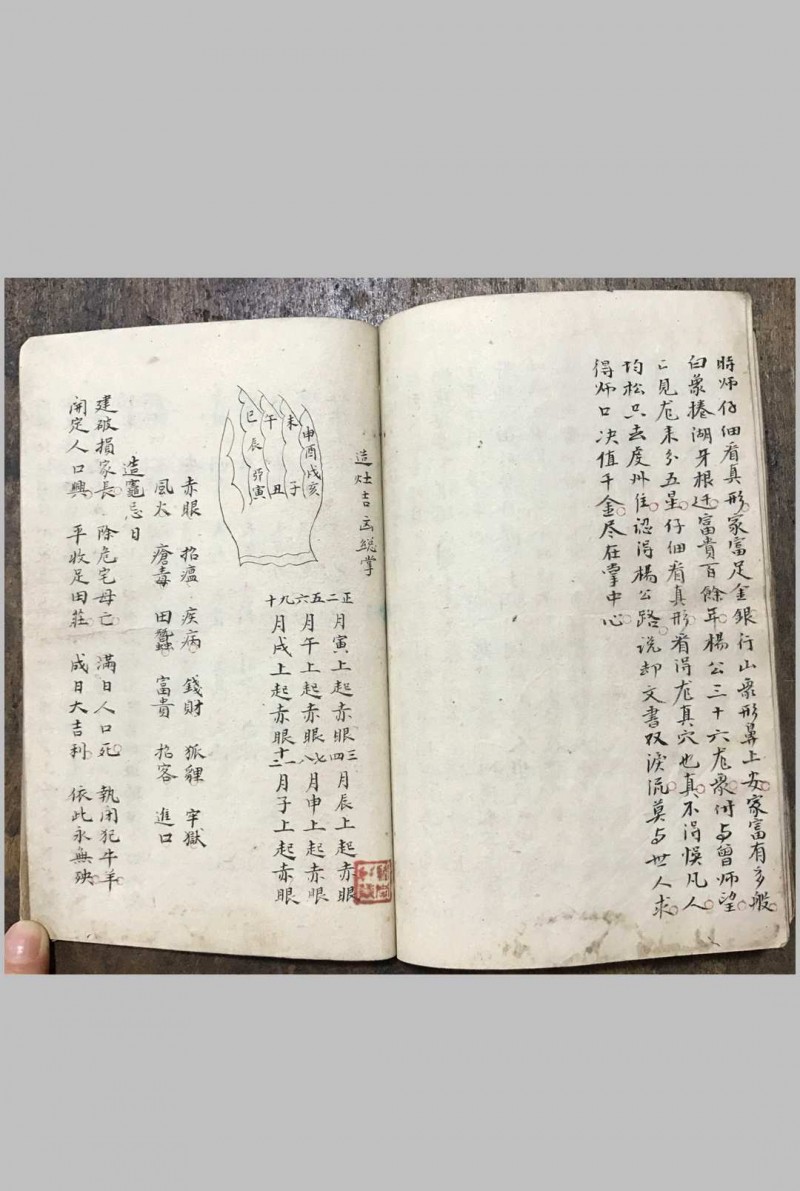 時师仔细看真形家富足金銀行山象形鼻上安家富有多般
白象捲湖牙根迁富貴百餘年楊公三十六龙象付与曾师望
亡見龙来分五星仔细看真形看得龙真穴也真不得悮凡人
均松只去虔州住認得楊公路说却文書双淚流莫与世人求
得师口决值千金尽在掌中心
造灶吉凶総掌
申酉戌亥
未 子
午 丑
巳辰卯寅
正二月寅上起赤眼三四月辰上起赤眼
五六月午上起赤眼七八月申上起赤眼
九十月戌上起赤眼十一十二月子上起赤眼
赤眼 招瘟 疾病 錢財 狐貍 牢獄
風火 瘡毒 田蠶 富貴 招客 進口
造竈忌日
建破損家長 除危宅母亡 滿日人口死 執閉犯牛羊
開定人口興 平收足田莊 成日大吉利 依此永無殃